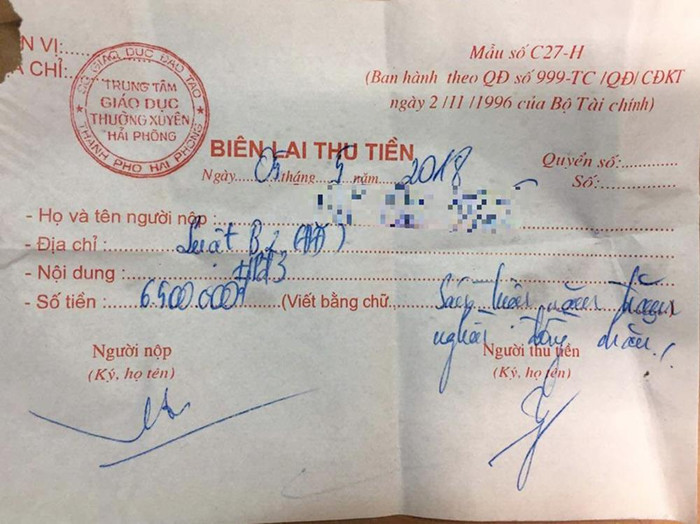 N VỊ:
A CHỈ:
SỞ GIÁO DỤC ĐÀO TẠO
TRUNG TÂM
GIÁO DỤC
THƯỜNG XUYÊN
HẢI PHÒNG
THÀNH PHỐ HẢI PHÒNG
Mẫu số C27-H
(Ban hành theo QĐ số 999-TC /QĐ/ CĐKT
ngày 2 /11 /1996 của Bộ Tài chính)
BIÊN LAI THU TIỀN
Ngày 05 tháng 5 năm 2018
Quyển số:
Số:
- Họ và tên người nộp :
- Địa chỉ : Luật B2
- Nội dung :
- Số tiền : 6.500.000đ (Viết bằng chữ Sáu triệu năm trăm
nghìn đồng chẵn.
Người nộp
(Ký, họ tên)
Người thu tiền
(Ký, họ tên)